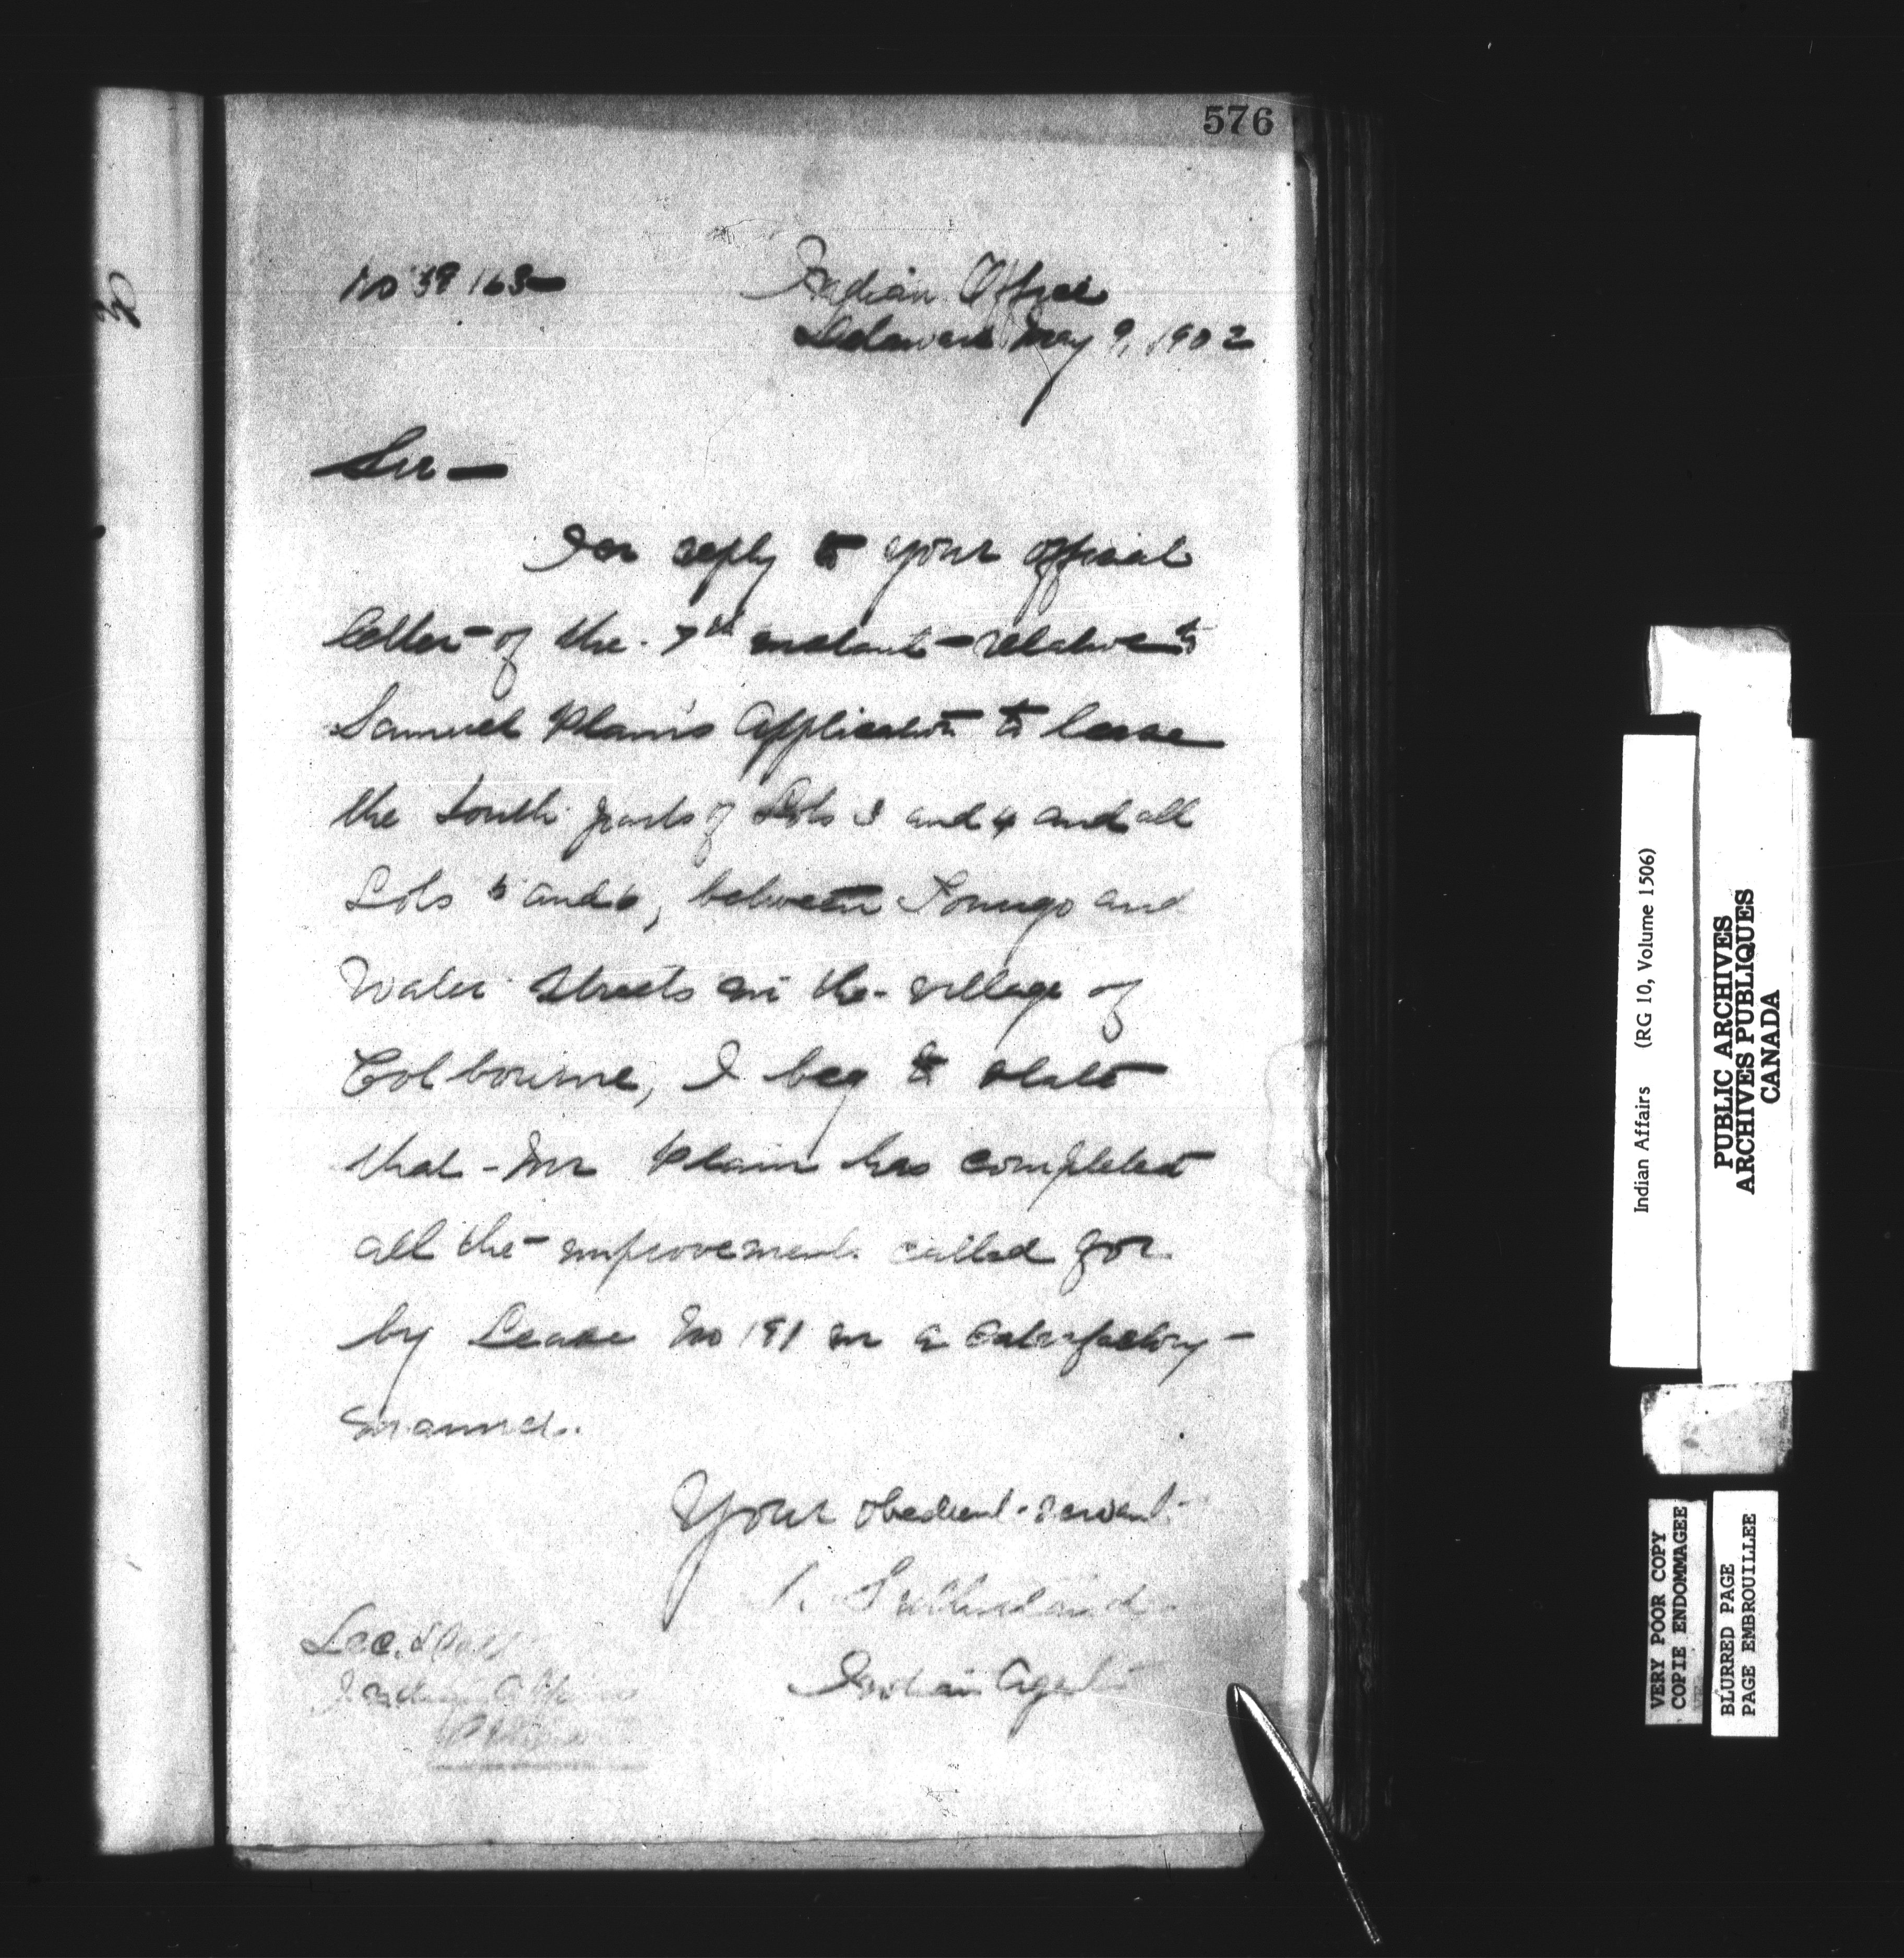 576
No 39 163
Indian Office
Delaware May 9, 1902
Sir —
In reply to your official
letter of the 7th instant relative to
Samuel Plain's Application to lease
the South parts of Lots 3 and 4 and all
Lots 5 and 6, between and
Water Streets in the village of
Colbourne, I beg to state
that Mr Plain has completed
all the improvements called for
by Lease No 191 in a satisfactory
manner.
Your obedient servant
Sutherland
Indian Agent
Indian Affairs
Indian Affairs (RG 10, Volume 1506)
PUBLIC ARCHIVES
ARCHIVES PUBLIQUES
CANADA
VERY POOR COPY
COPIE ENDOMMAGEE
BLURRED PAGE
PAGE EMBROUILLEE